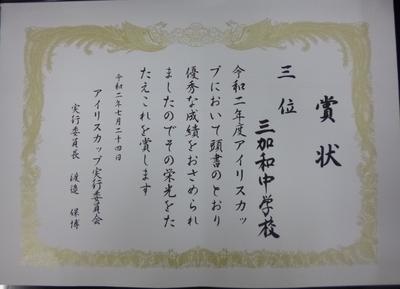 賞状
三位
三加和中学校
令和二年度アイリスカッ
プにおいて頭書のとおり
優秀な成績をおさめられ
ましたのでその栄光をた
たえこれを賞します
令和二年七月二十四日
アイリスカップ実行委員会
実行委員長 渡邉 保博